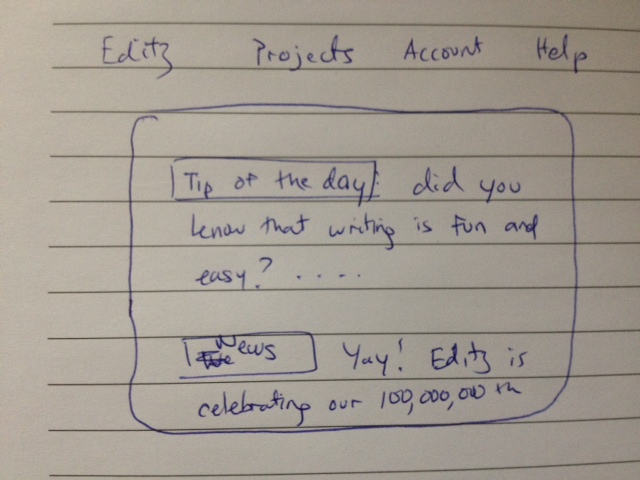 Editz Projects Account Help
Tip of the day: did you
know that writing is fun and
easy? .....
News Yay! Editz is
celebrating our 100,000,000 th